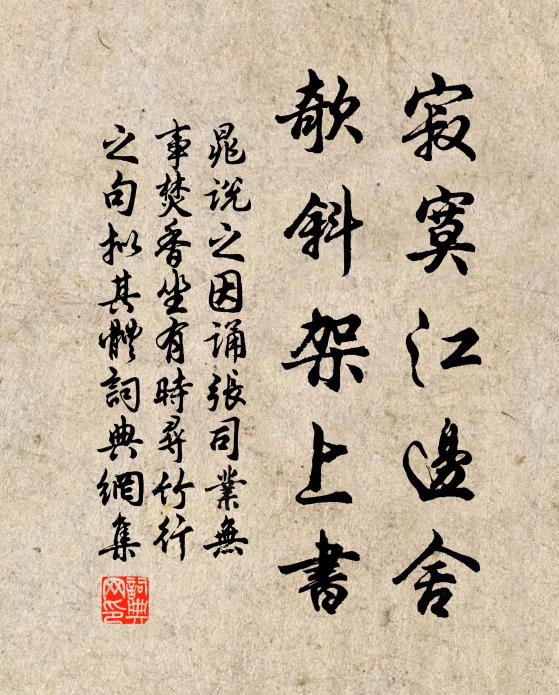 寂寞江邊舍
欹斜架上書
晁說之因誦張司業無
事焚香坐有時尋竹行
之句擬其體詞典網集
詞典網印